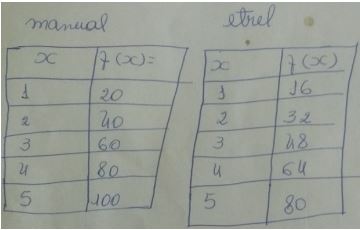 manual
x f(x)=
1 20
2 40
3 60
4 80
5 100
etrel
x f(x)
1 16
2 32
3 48
4 64
5 80